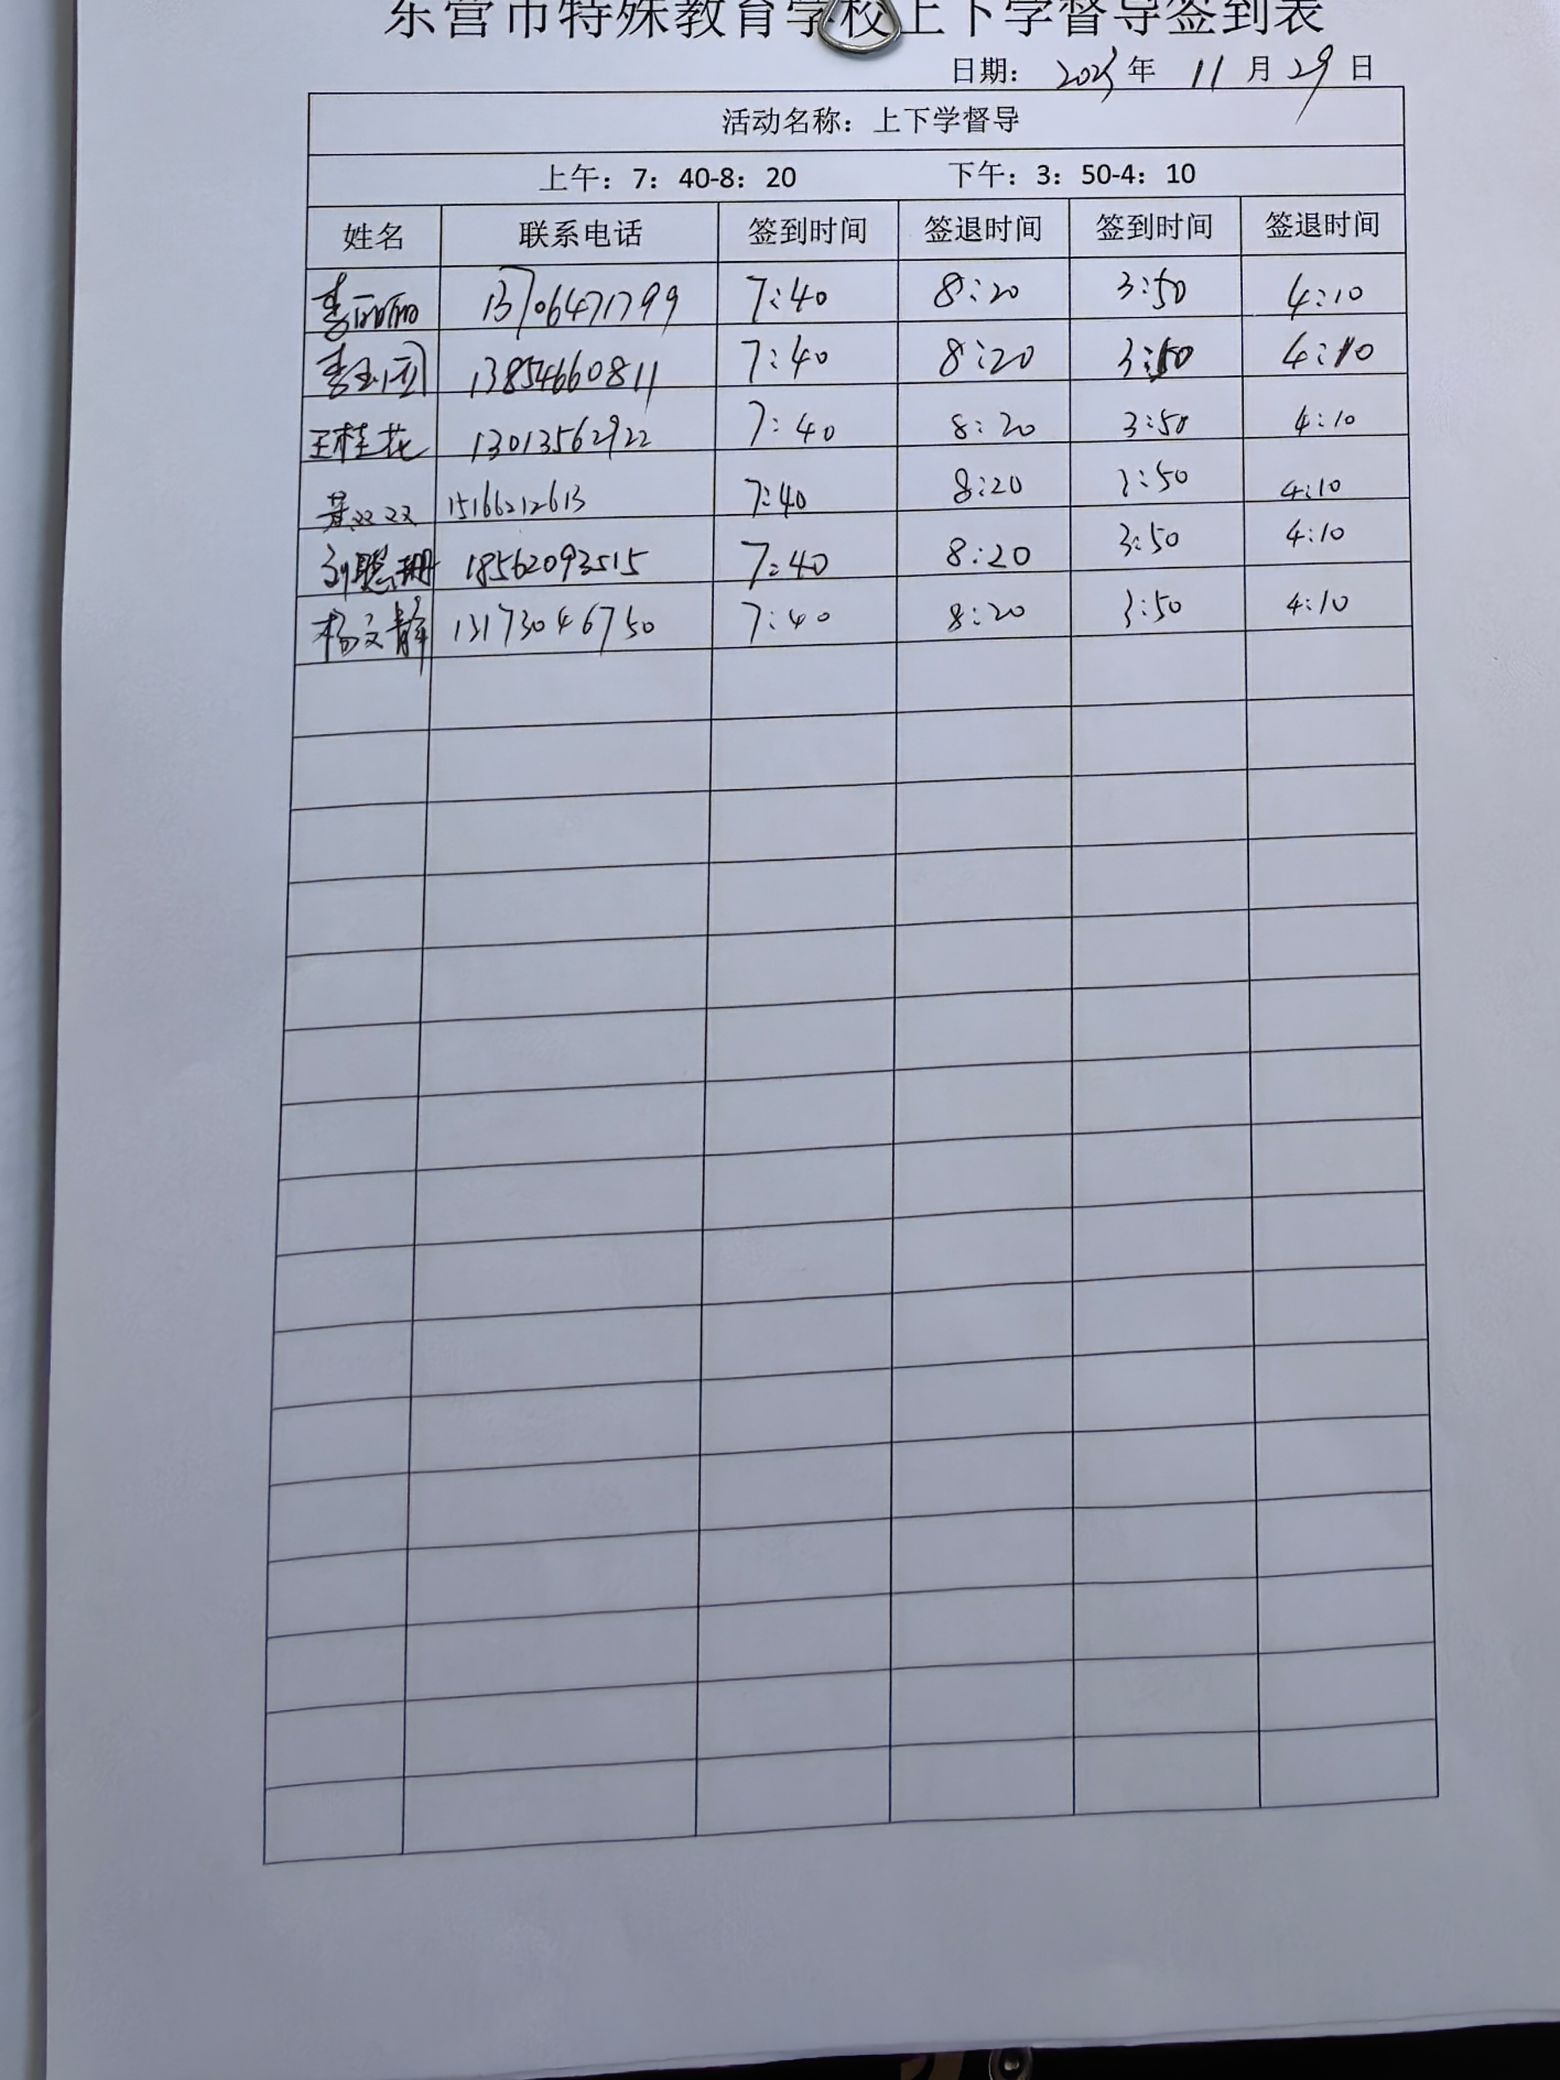 东营市特殊教育学校上下学督导签到表
日期： 2023年 11月29日
活动名称：上下学督导
上午：7：40-8：20 下午：3：50-4：10
姓名 联系电话 签到时间 签退时间 签到时间 签退时间
李丽丽 13706471799 7:40 8:20 3:50 4:10
李 13854660811 7:40 8:20 3:50 4:10
王桂花 13013562922 7:40 8:20 3:50 4:10
黄双双 15166212613 7:40 8:20 3:50 4:10
刘聪珊 18562093515 7:40 8:20 3:50 4:10
杨文静 13173046750 7:40 8:20 3:50 4:10